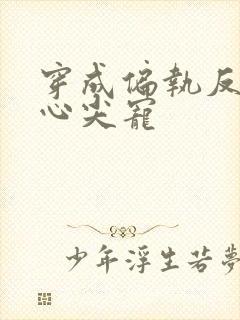 穿成偏執反
心尖寵
少年浮生若夢